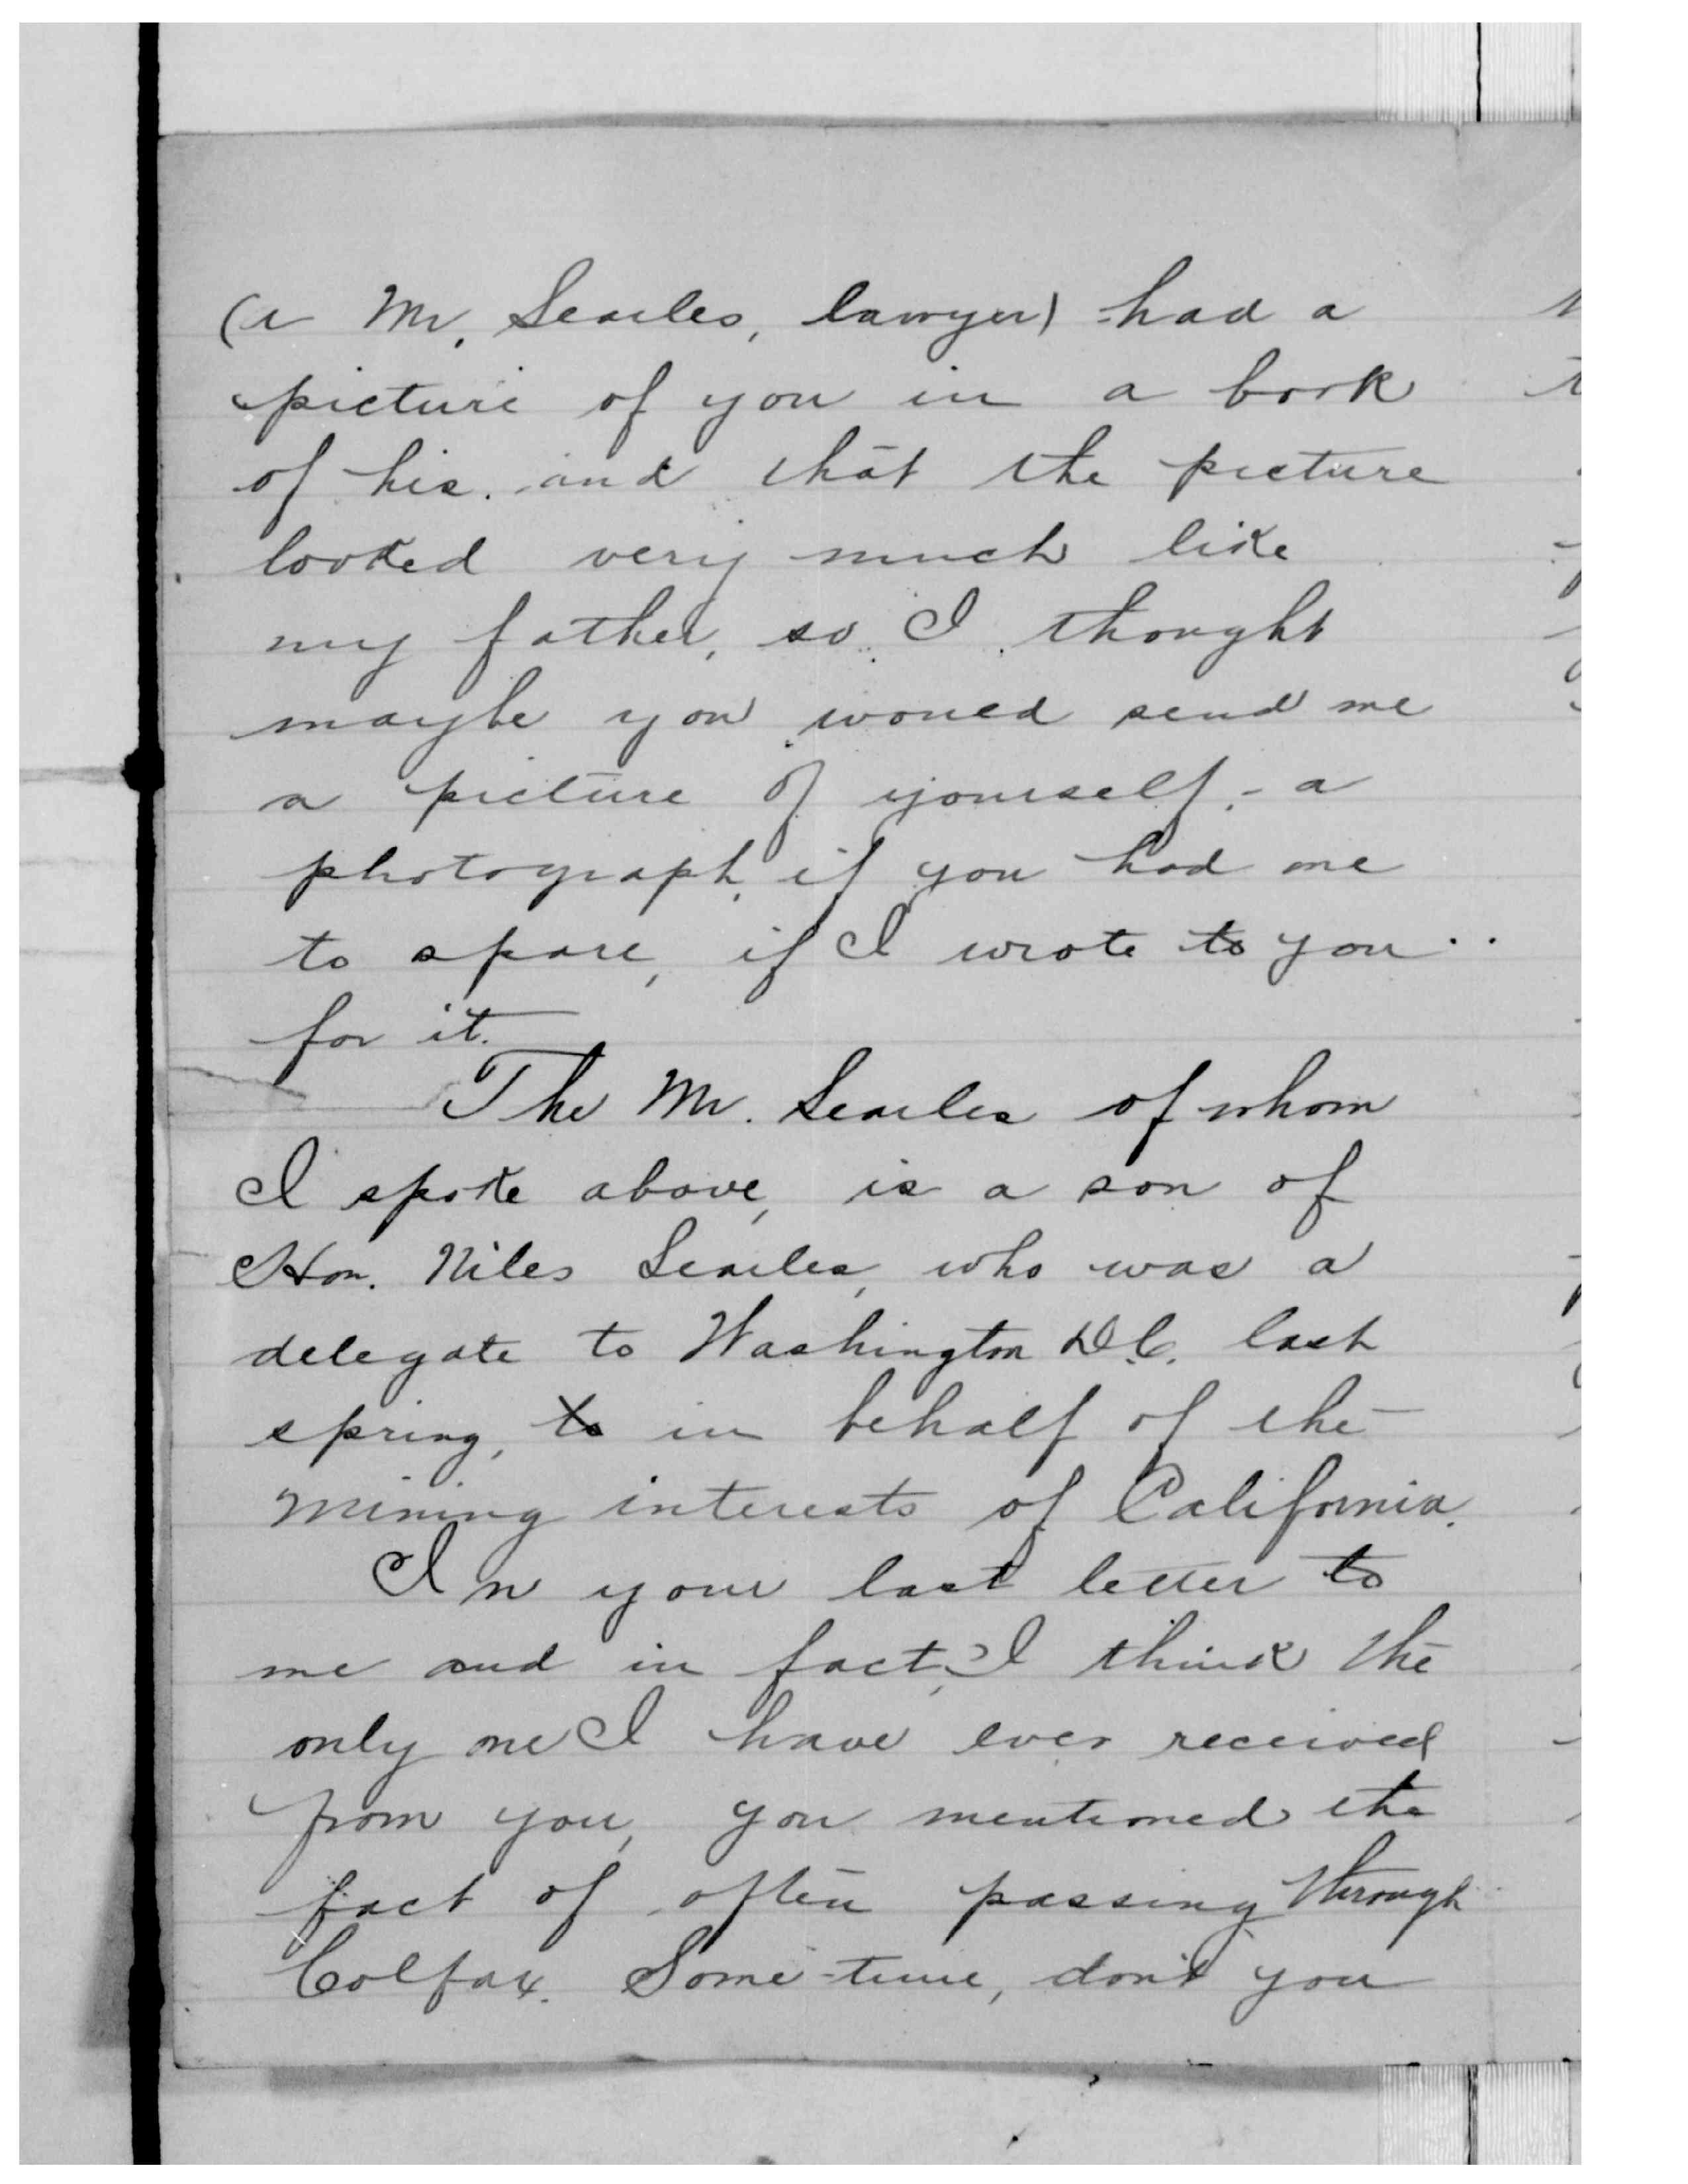 (a Mr. Searles, lawyer) had a
picture of you in a book
of his. and that the picture
looked very much like
my father, so I thought
maybe you would send me
a picture of yourself, - a
photograph, if you had one
to spare, if I wrote to you
for it.
The Mr. Searles of whom
I spoke above, is a son of
Hon. Niles Searles, who was a
delegate to Washington D.C. last
spring, to in behalf of the
mining interests of California.
In your last letter to
me and in fact, I think the
only one I have ever received
from you, you mentioned the
fact of often passing through
Colfax. Some-time, don't you